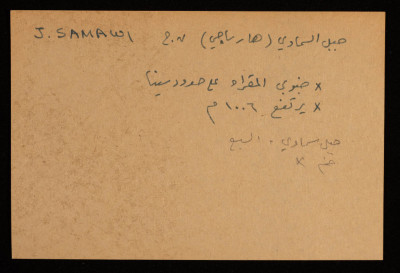 J. SAMAWI
جبل السماوي (هار ساجي) ن.ج
× جنوبي المقراه على حدود سينا
× يرتفع ١٠٠٦ م
جبل سماوي . السبع
×